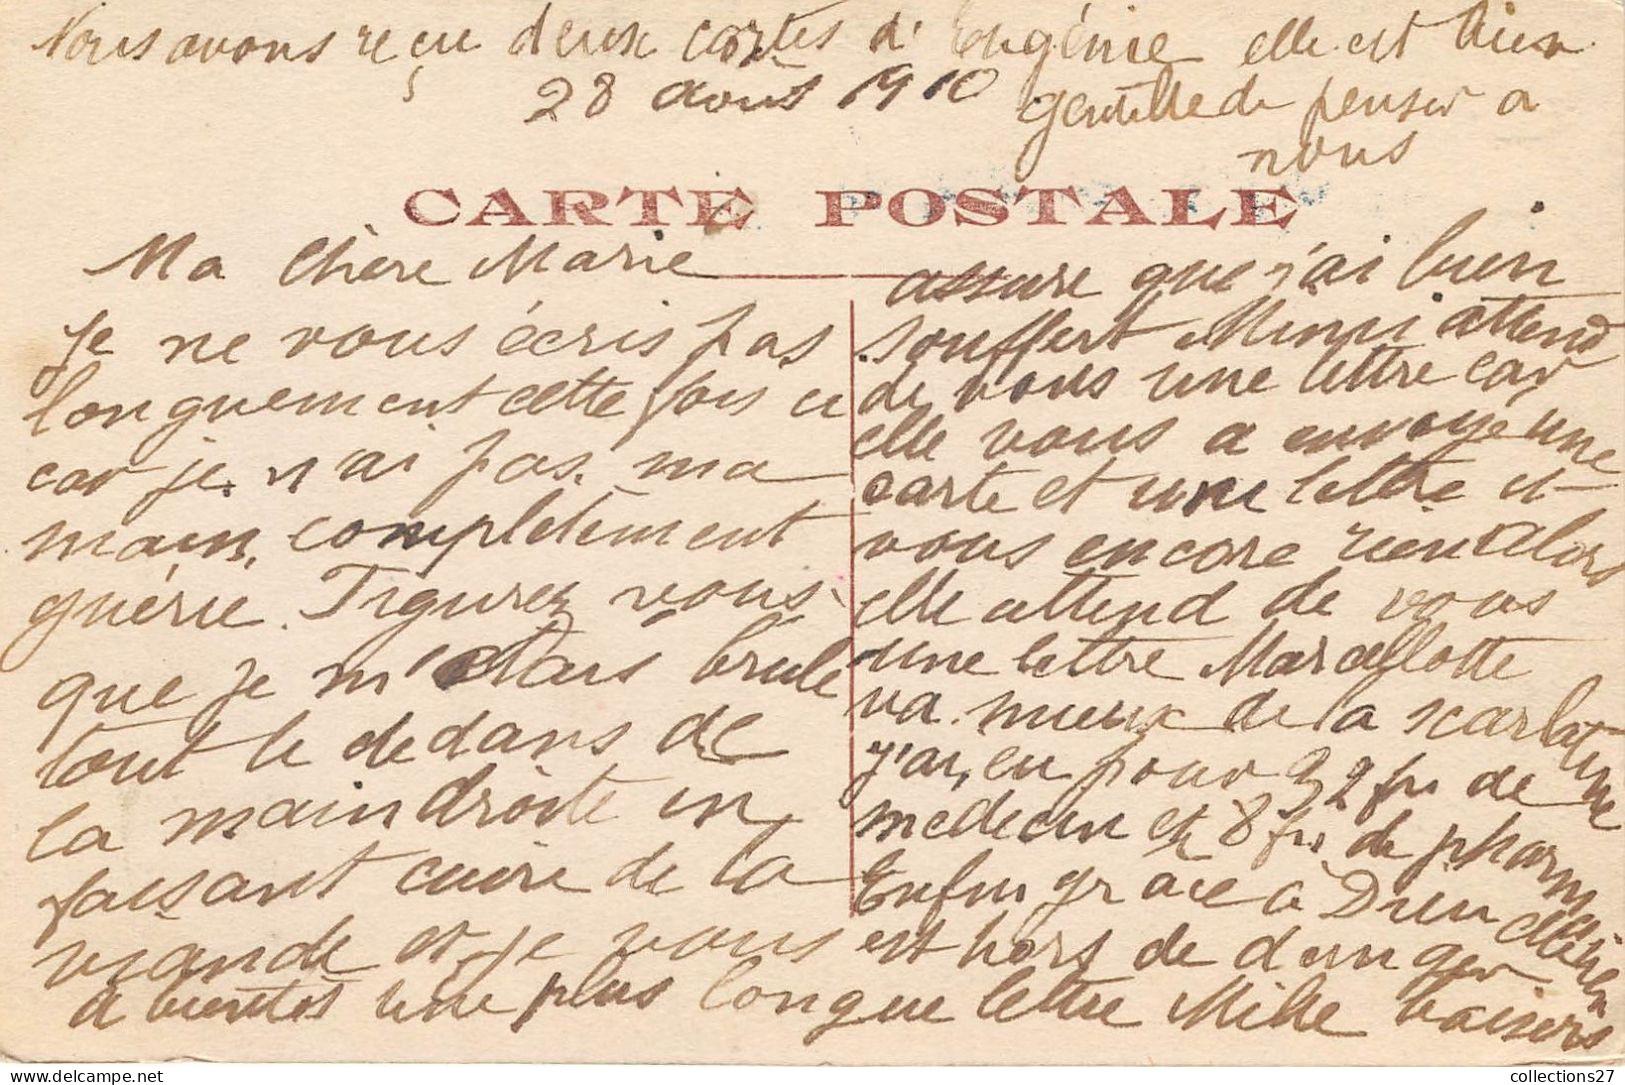 Nous avons reçu deux cartes d'Eugénie elle est bien
gentille de penser a
nous
28 aout 1910
CARTE POSTALE
Ma Chère Marie
Je ne vous écris pas
longuement cette fois ci
car je n'ai pas ma
main completement
guérie. Figurez vous
que je m'etais brulé
tout le dedans de
la main droite en
faisant cuire de la
viande et je vous
assure que j'ai bien
souffert Mimi attend
de vous une lettre car
elle vous a envoyé une
carte et une lettre et
vous encore rien alors
elle attend de vous
une lettre Marcellotte
va mieux de la scarlatine
j'ai eu pour 32 frs de
medecin et 8 frs de pharm
Enfin grace à Dieu elle
est hors de danger
a bientot une plus longue lettre Mille baisers
collections27